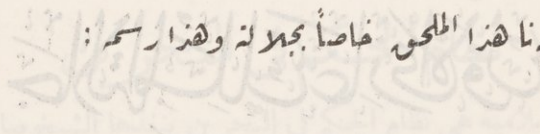 نا هذا الملحق خاصاً بجلالته وهذا رسمه :